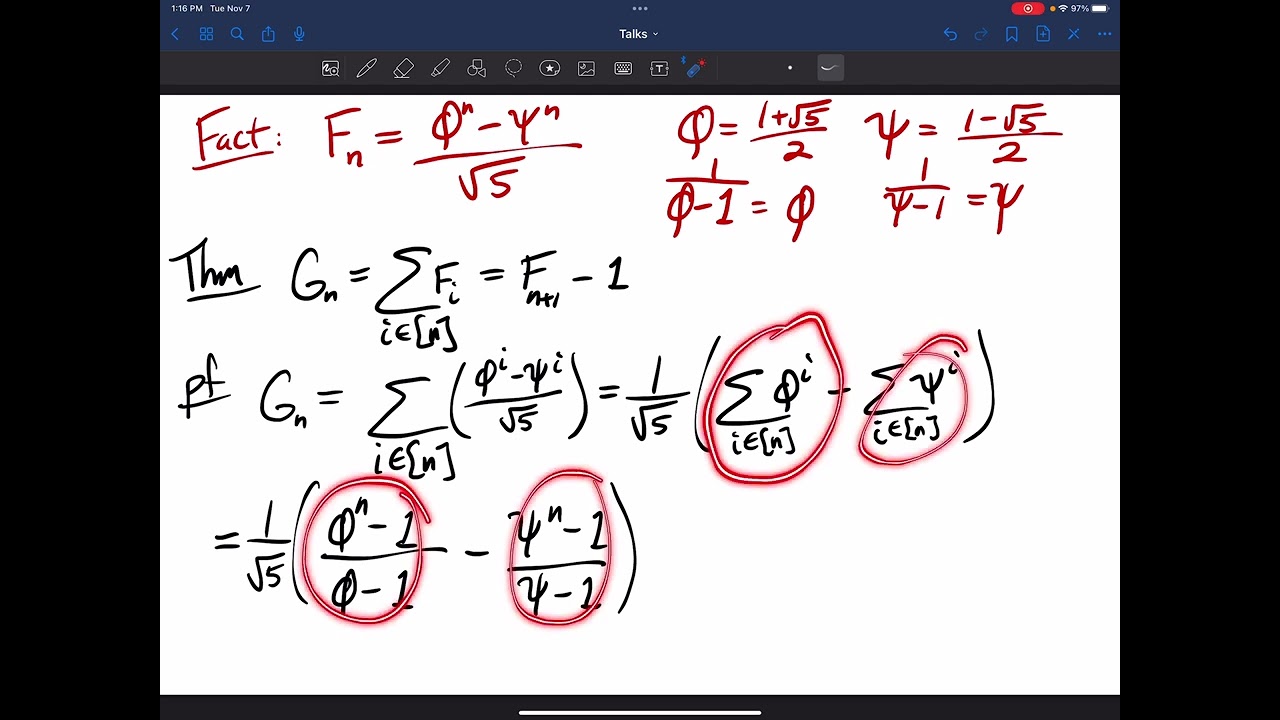 1:16 PM Tue Nov 7
97%
Talks
Fact: Fₙ = (φⁿ − ψⁿ)/√5 φ = (1+√5)/2 ψ = (1−√5)/2
1/(φ−1) = φ 1/(ψ−1) = ψ
Thm Gₙ = ∑_{i∈[n]} F_i = F_{n+1} − 1
pf Gₙ = ∑_{i∈[n]} ((φⁱ−ψⁱ)/√5) = 1/√5 (∑_{i∈[n]} φⁱ − ∑_{i∈[n]} ψⁱ)
= 1/√5 ((φⁿ−1)/(φ−1) − (ψⁿ−1)/(ψ−1))